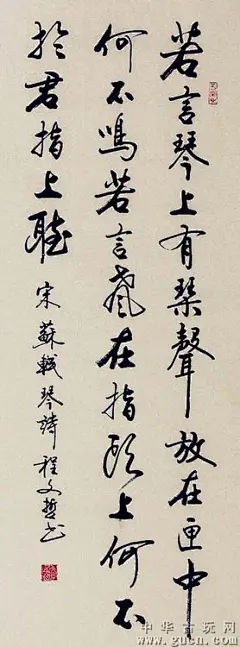 若言琴上有琹聲放在匣中
何不鳴若言聲在指頭上何不
於君指上聽
宋蘇軾琴詩程文哲书
中华古玩网
www.gucn.com